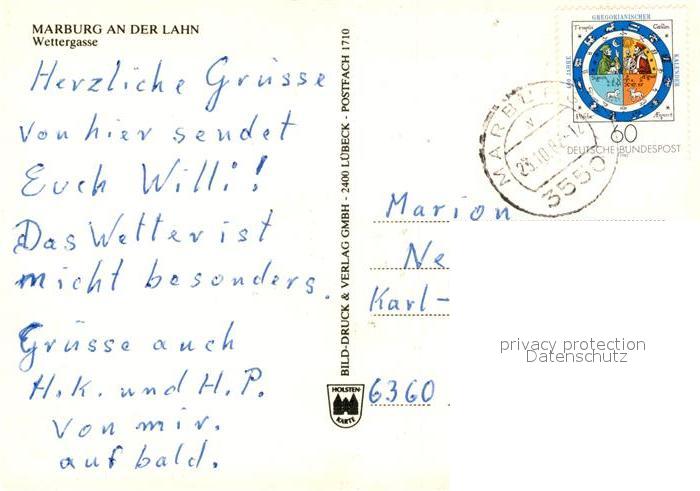 MARBURG AN DER LAHN
Wettergasse
Herzliche Grüsse
von hier sendet
Euch Willi!
Das Wetter ist
nicht besonders.
Grüsse auch
H.K. und H.P.
von mir.
auf bald.
BILD-DRUCK & VERLAG GMBH - 2400 LÜBECK - POSTFACH 1710
HOLSTEN-
KARTE
GREGORIANISCHER
KALENDER
400 JAHRE
60
DEUTSCHE BUNDESPOST
MARBURG
3550
Marion
Ne
Karl-
6360
privacy protection
Datenschutz